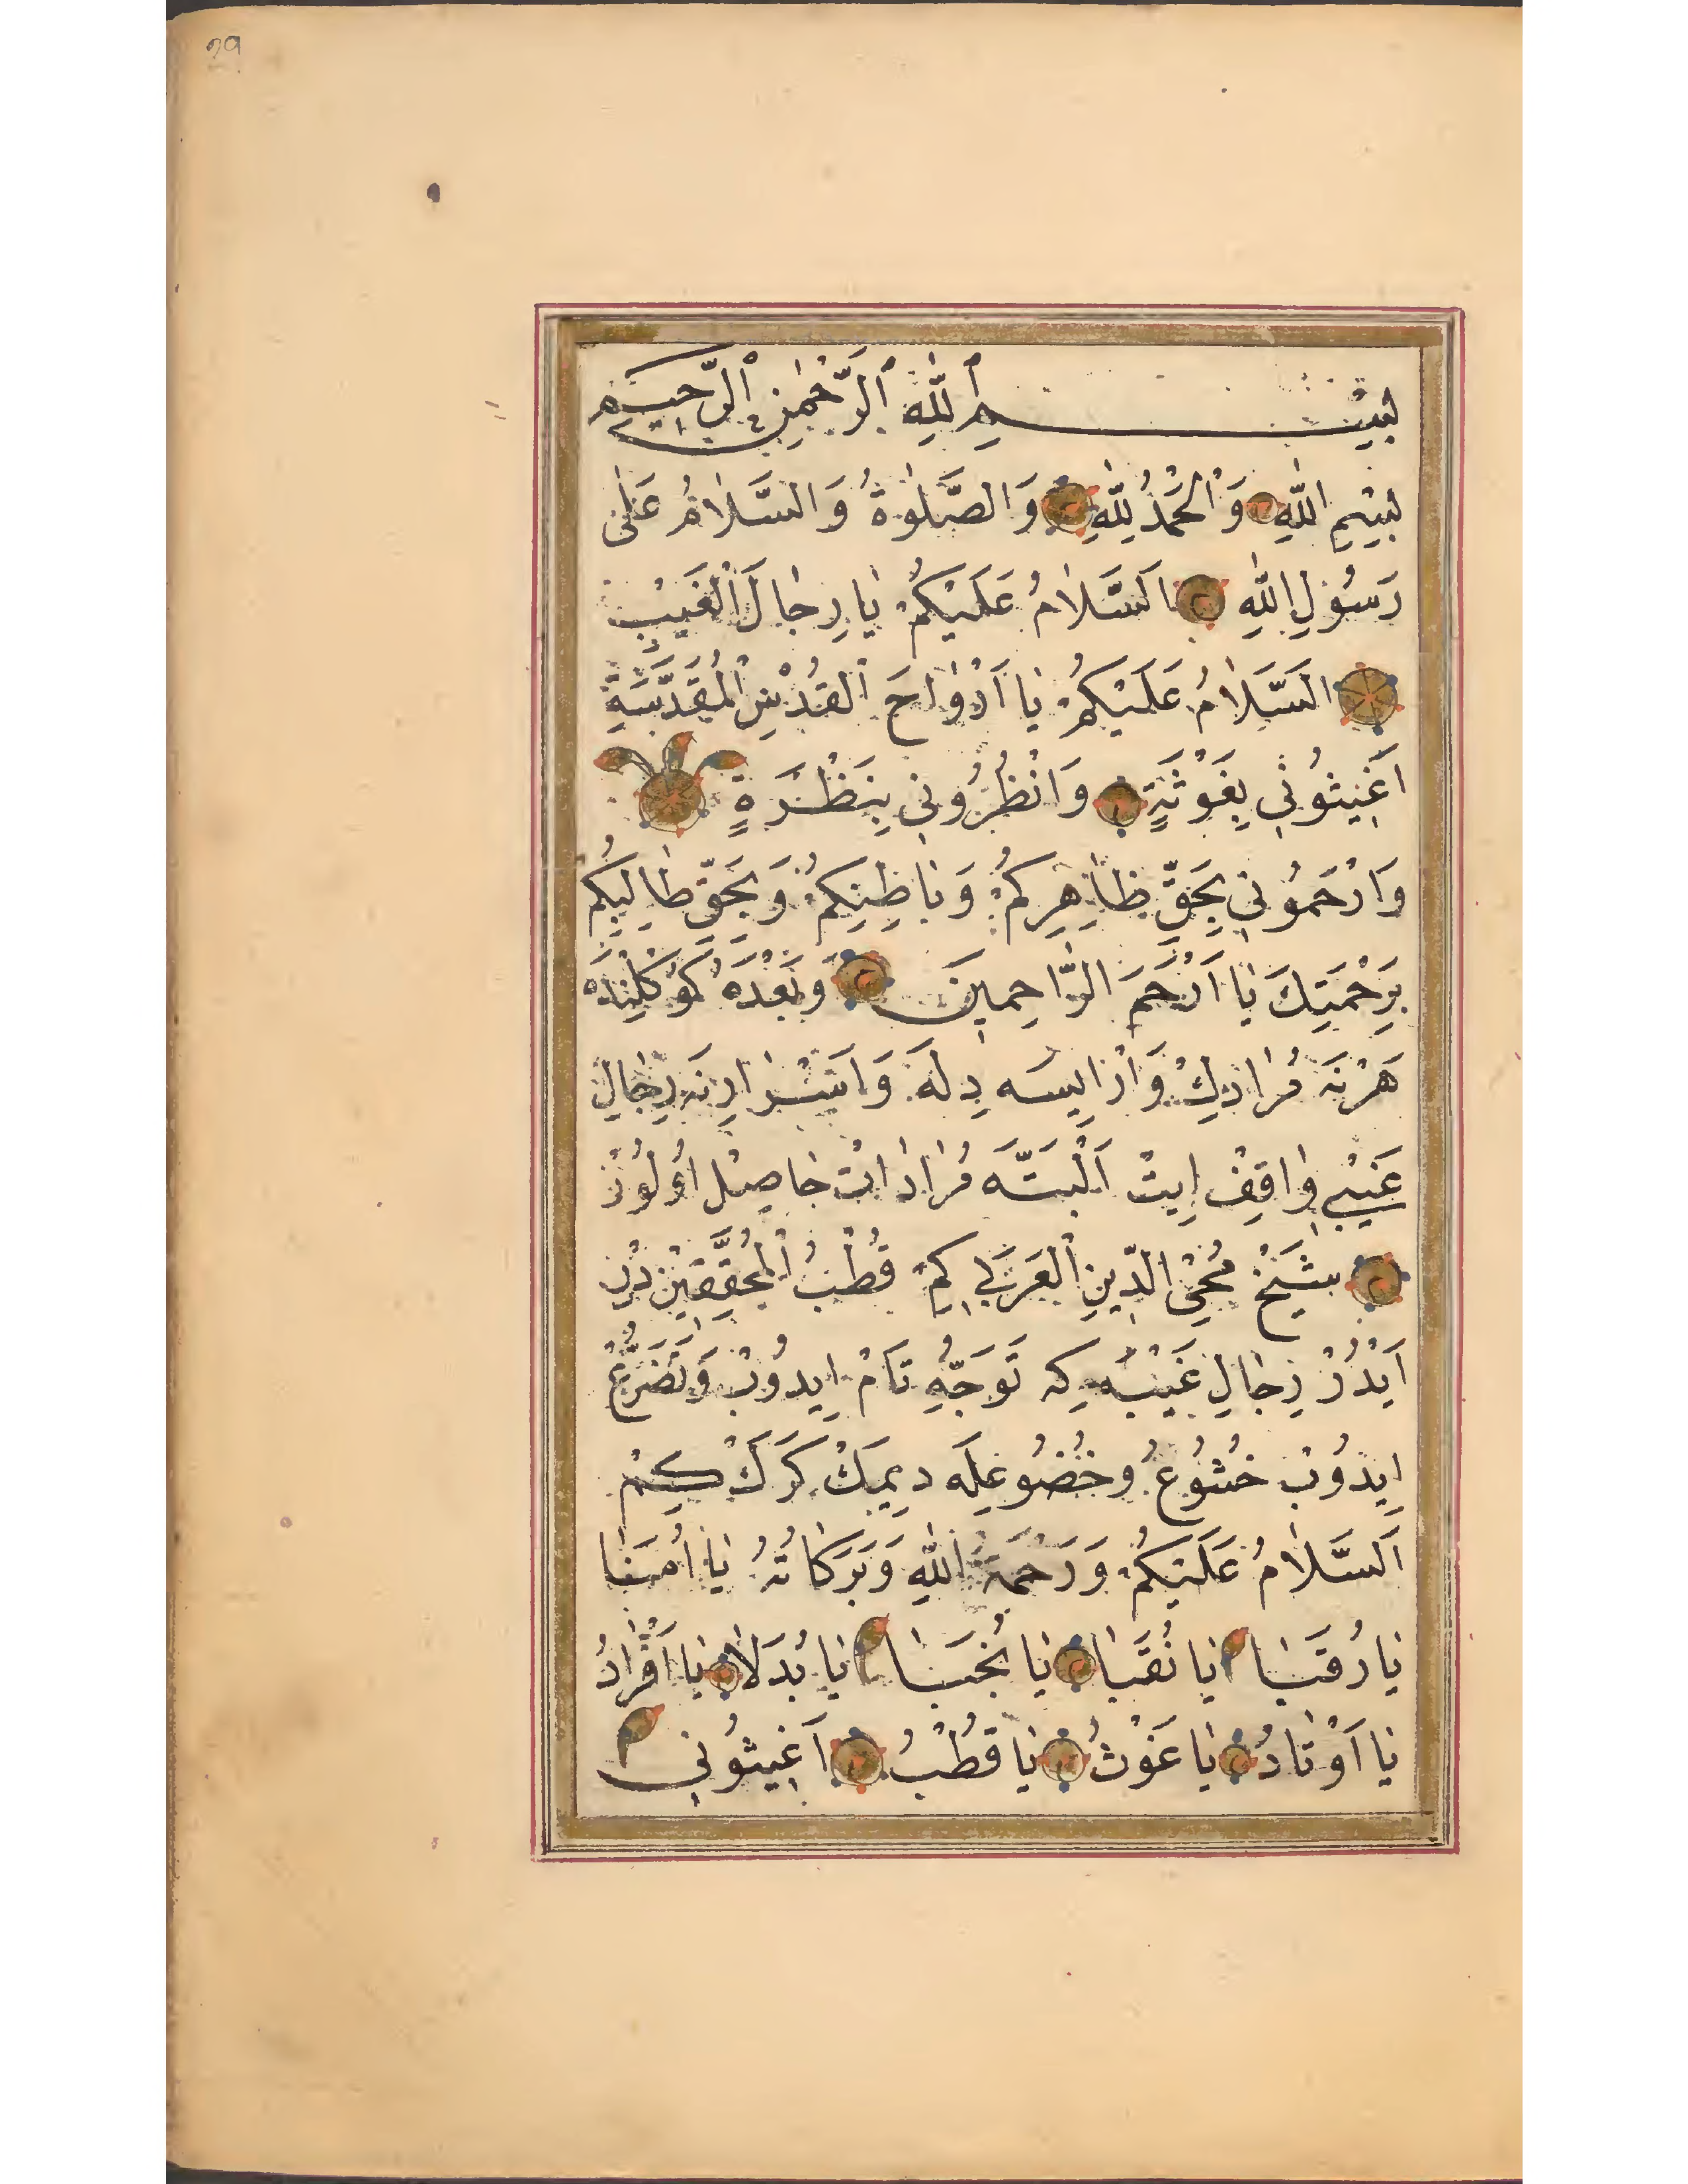 29
بِسْمِ اللّٰهِ الرَّحْمٰنِ الرَّحِيمِ
بِسْمِ اللّٰهِ وَالْحَمْدُ لِلّٰهِ وَالصَّلٰوةُ وَالسَّلَامُ عَلٰى
رَسُولِ اللّٰهِ اَلسَّلَامُ عَلَيْكُمْ يَا رِجَالَ الْغَيْبِ
اَلسَّلَامُ عَلَيْكُمْ يَا اَرْوَاحَ الْقُدْسِ الْمُقَدَّسَةِ
اَغِيثُونِي بِغَوْثَةٍ وَانْظُرُونِي بِنَظْرَةٍ
وَارْحَمُونِي بِحَقِّ ظَاهِرِكُمْ وَبَاطِنِكُمْ وَبِحَقِّ طَالِبِكُمْ
بِرَحْمَتِكَ يَا اَرْحَمَ الرَّاحِمِينَ وَبَعْدَهُ كَوْكُلِنْدَه
هَرْنَه مُرَادِكْ وَارْايسَه دِلَه وَاَيْتْسْرَارِنَه رِجَالِ
غَيْبِي وَاقِفْ اِيتْ اَلْبَتَّه مُرَادَاتْ حَاصِلْ اُولُورْ
شَيْخْ مُحْيِ الدِّينِ الْعَرَبِي كِمْ قُطْبُ الْمُحَقِّقِينْ دُرْ
اَيْدُرْ رِجَالِ غَيْبَه كِه تَوَجُّهِ تَامْ اِيدُوبْ وَتَضَرُّعْ
اِيدُوبْ خُشُوعْ وَخُضُوعِلَه دِيمَكْ كَرَكْ كِمْ
اَلسَّلَامُ عَلَيْكُمْ وَرَحْمَةُ اللّٰهِ وَبَرَكَاتُهُ يَا اُمَنَا
يَا رُقَبَا يَا نُقَبَا يَا نُجَبَا يَا بُدَلَا يَا اَفْرَادُ
يَا اَوْتَادُ يَا غَوْثُ يَا قُطْبُ اَغِيثُونِي